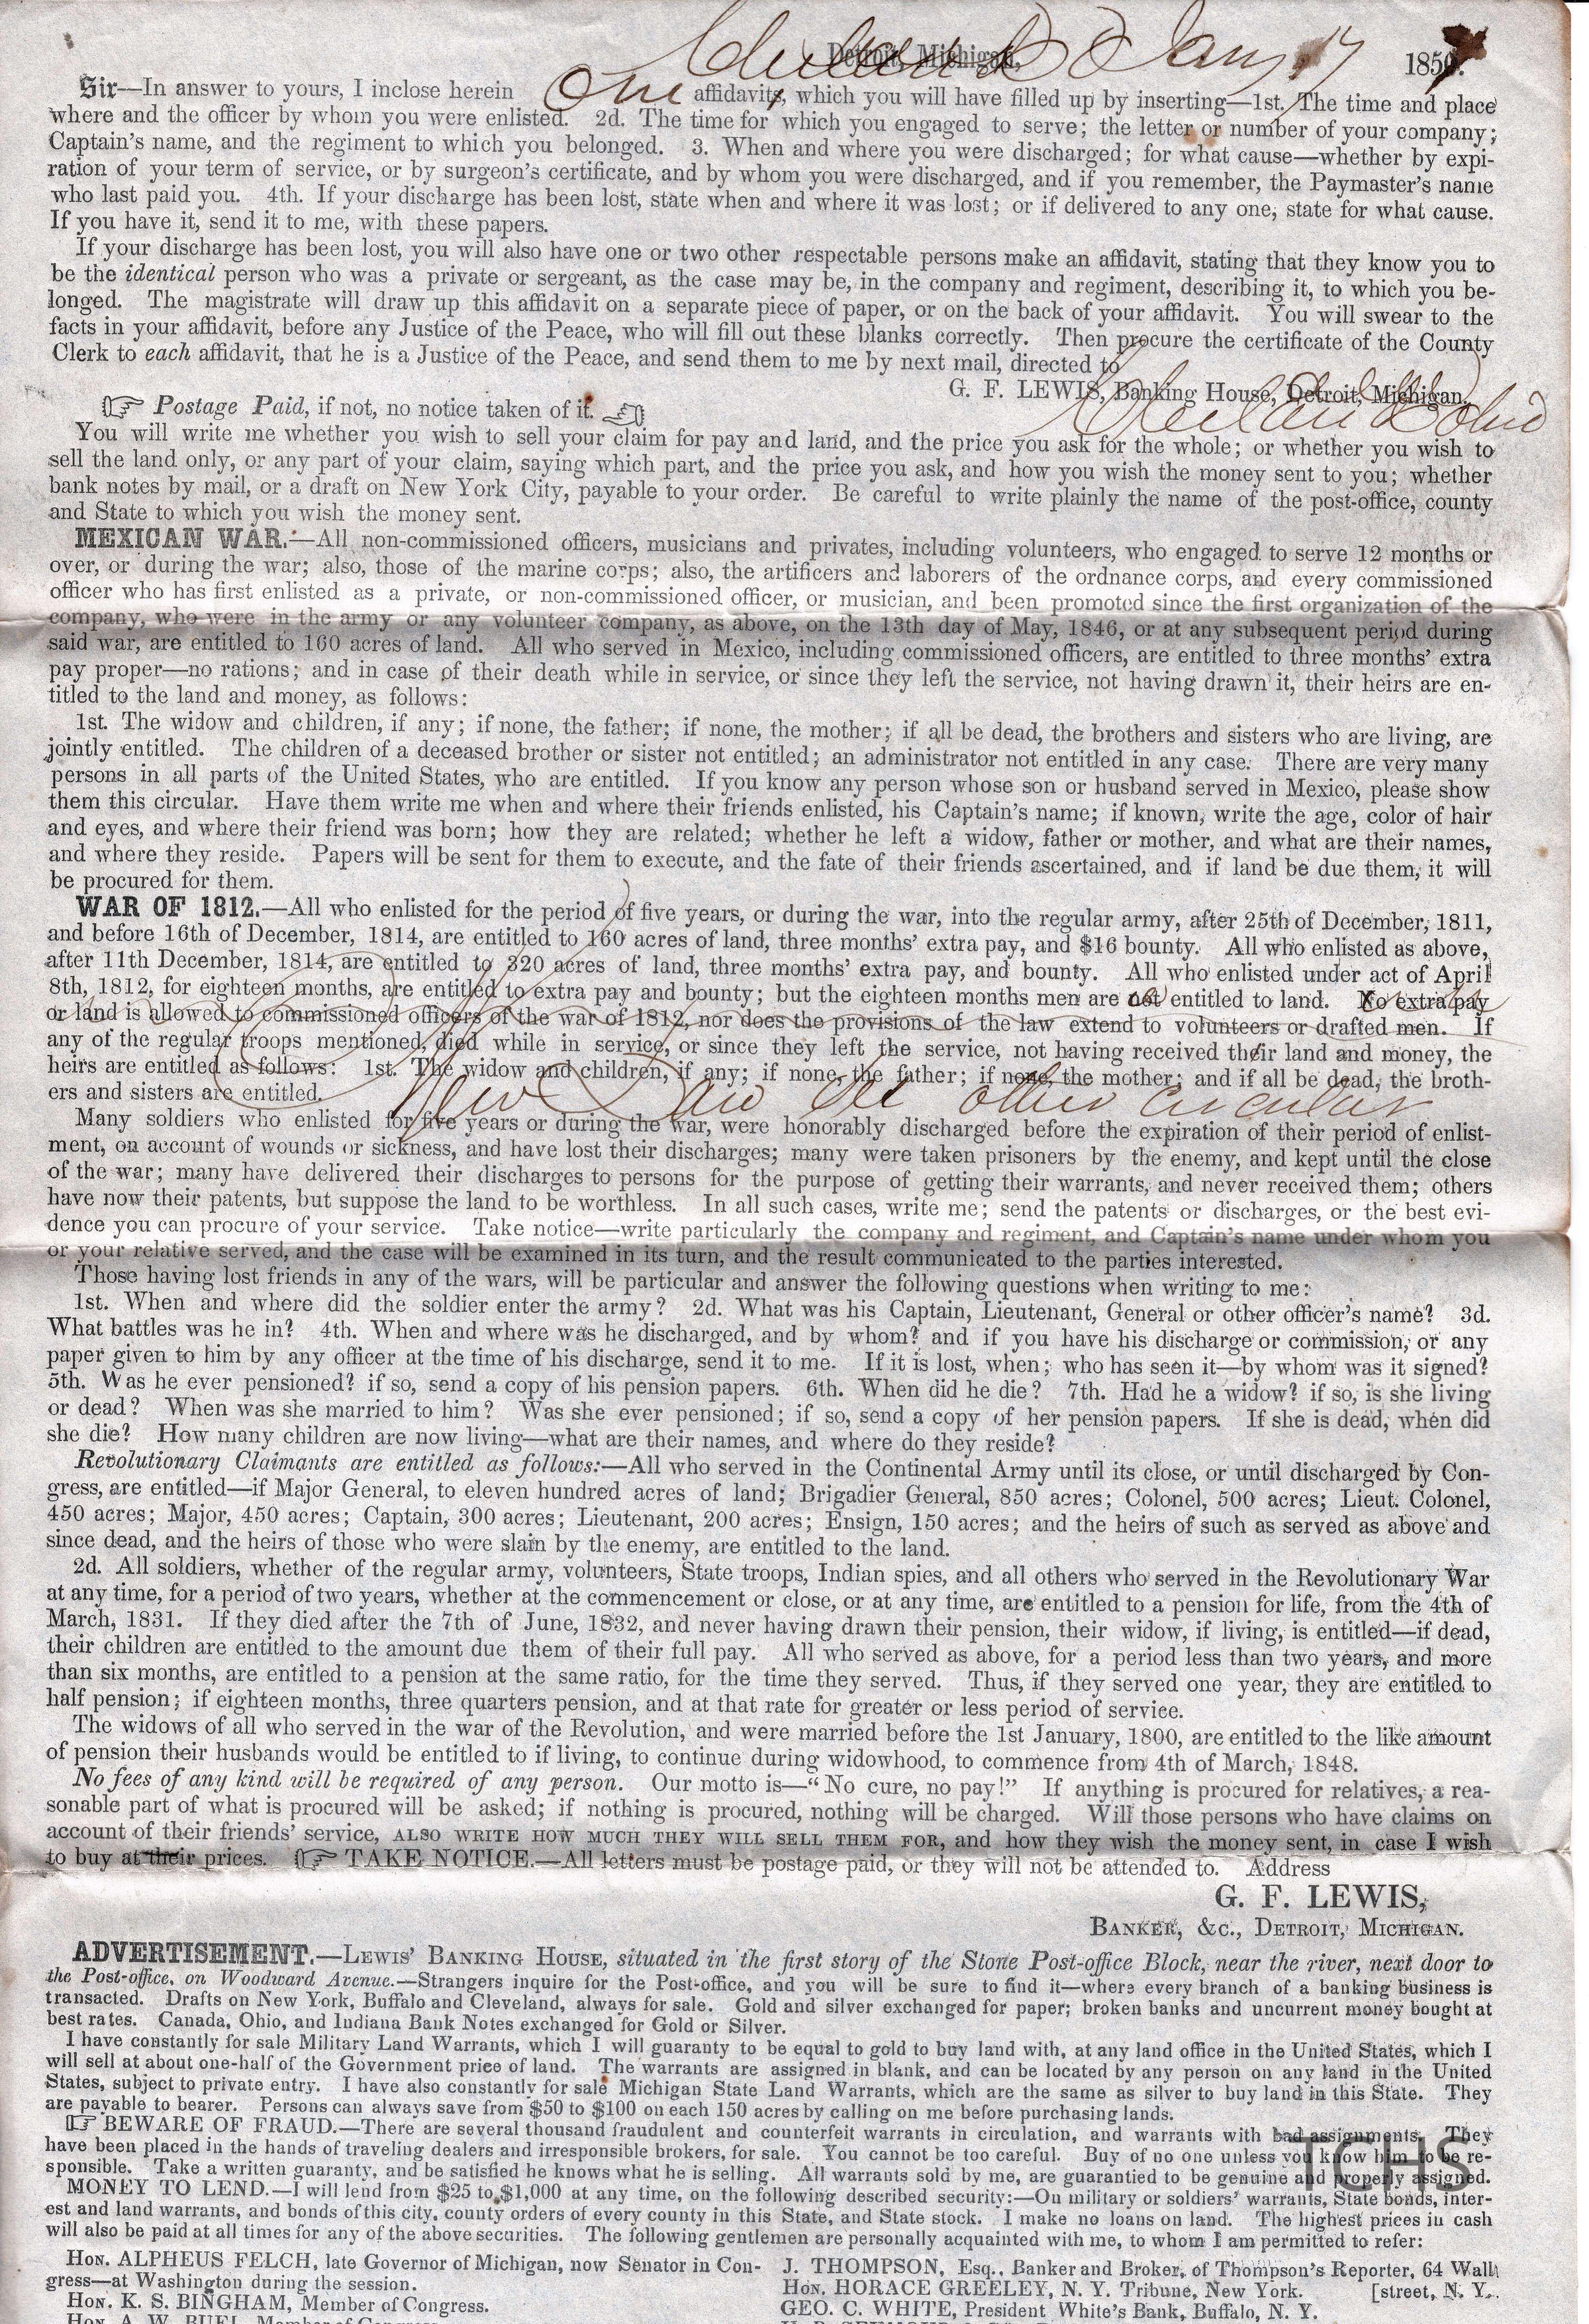 Detroit, Michigan, Cleveland O Jany 17 185
Sir—In answer to yours, I inclose herein One affidavits, which you will have filled up by inserting—1st. The time and place
where and the officer by whom you were enlisted. 2d. The time for which you engaged to serve; the letter or number of your company;
Captain's name, and the regiment to which you belonged. 3. When and where you were discharged; for what cause—whether by expi-
ration of your term of service, or by surgeon's certificate, and by whom you were discharged, and if you remember, the Paymaster's name
who last paid you. 4th. If your discharge has been lost, state when and where it was lost; or if delivered to any one, state for what cause.
If you have it, send it to me, with these papers.
If your discharge has been lost, you will also have one or two other respectable persons make an affidavit, stating that they know you to
be the identical person who was a private or sergeant, as the case may be, in the company and regiment, describing it, to which you be-
longed. The magistrate will draw up this affidavit on a separate piece of paper, or on the back of your affidavit. You will swear to the
facts in your affidavit, before any Justice of the Peace, who will fill out these blanks correctly. Then procure the certificate of the County
Clerk to each affidavit, that he is a Justice of the Peace, and send them to me by next mail, directed to
G. F. LEWIS, Banking House, Detroit, Michigan.
Cleveland Ohio
☞ Postage Paid, if not, no notice taken of it. ☜
You will write me whether you wish to sell your claim for pay and land, and the price you ask for the whole; or whether you wish to
sell the land only, or any part of your claim, saying which part, and the price you ask, and how you wish the money sent to you; whether
bank notes by mail, or a draft on New York City, payable to your order. Be careful to write plainly the name of the post-office, county
and State to which you wish the money sent.
MEXICAN WAR.—All non-commissioned officers, musicians and privates, including volunteers, who engaged to serve 12 months or
over, or during the war; also, those of the marine corps; also, the artificers and laborers of the ordnance corps, and every commissioned
officer who has first enlisted as a private, or non-commissioned officer, or musician, and been promoted since the first organization of the
company, who were in the army or any volunteer company, as above, on the 13th day of May, 1846, or at any subsequent period during
said war, are entitled to 160 acres of land. All who served in Mexico, including commissioned officers, are entitled to three months' extra
pay proper—no rations; and in case of their death while in service, or since they left the service, not having drawn it, their heirs are en-
titled to the land and money, as follows:
1st. The widow and children, if any; if none, the father; if none, the mother; if all be dead, the brothers and sisters who are living, are
jointly entitled. The children of a deceased brother or sister not entitled; an administrator not entitled in any case. There are very many
persons in all parts of the United States, who are entitled. If you know any person whose son or husband served in Mexico, please show
them this circular. Have them write me when and where their friends enlisted, his Captain's name; if known, write the age, color of hair
and eyes, and where their friend was born; how they are related; whether he left a widow, father or mother, and what are their names,
and where they reside. Papers will be sent for them to execute, and the fate of their friends ascertained, and if land be due them, it will
be procured for them.
WAR OF 1812.—All who enlisted for the period of five years, or during the war, into the regular army, after 25th of December, 1811,
and before 16th of December, 1814, are entitled to 160 acres of land, three months' extra pay, and $16 bounty. All who enlisted as above,
after 11th December, 1814, are entitled to 320 acres of land, three months' extra pay, and bounty. All who enlisted under act of April
8th, 1812, for eighteen months, are entitled to extra pay and bounty; but the eighteen months men are not entitled to land. No extra pay
or land is allowed to commissioned officers of the war of 1812, nor does the provisions of the law extend to volunteers or drafted men. If
any of the regular troops mentioned, died while in service, or since they left the service, not having received their land and money, the
heirs are entitled as follows: 1st. The widow and children, if any; if none, the father; if none, the mother; and if all be dead, the broth-
ers and sisters are entitled.
New Law see other circular
Many soldiers who enlisted for five years or during the war, were honorably discharged before the expiration of their period of enlist-
ment, on account of wounds or sickness, and have lost their discharges; many were taken prisoners by the enemy, and kept until the close
of the war; many have delivered their discharges to persons for the purpose of getting their warrants, and never received them; others
have now their patents, but suppose the land to be worthless. In all such cases, write me; send the patents or discharges, or the best evi-
dence you can procure of your service. Take notice—write particularly the company and regiment, and Captain's name under whom you
or your relative served, and the case will be examined in its turn, and the result communicated to the parties interested.
Those having lost friends in any of the wars, will be particular and answer the following questions when writing to me:
1st. When and where did the soldier enter the army? 2d. What was his Captain, Lieutenant, General or other officer's name? 3d.
What battles was he in? 4th. When and where was he discharged, and by whom? and if you have his discharge or commission, or any
paper given to him by any officer at the time of his discharge, send it to me. If it is lost, when; who has seen it—by whom was it signed?
5th. Was he ever pensioned? if so, send a copy of his pension papers. 6th. When did he die? 7th. Had he a widow? if so, is she living
or dead? When was she married to him? Was she ever pensioned; if so, send a copy of her pension papers. If she is dead, when did
she die? How many children are now living—what are their names, and where do they reside?
Revolutionary Claimants are entitled as follows:—All who served in the Continental Army until its close, or until discharged by Con-
gress, are entitled—if Major General, to eleven hundred acres of land; Brigadier General, 850 acres; Colonel, 500 acres; Lieut. Colonel,
450 acres; Major, 450 acres; Captain, 300 acres; Lieutenant, 200 acres; Ensign, 150 acres; and the heirs of such as served as above and
since dead, and the heirs of those who were slain by the enemy, are entitled to the land.
2d. All soldiers, whether of the regular army, volunteers, State troops, Indian spies, and all others who served in the Revolutionary War
at any time, for a period of two years, whether at the commencement or close, or at any time, are entitled to a pension for life, from the 4th of
March, 1831. If they died after the 7th of June, 1832, and never having drawn their pension, their widow, if living, is entitled—if dead,
their children are entitled to the amount due them of their full pay. All who served as above, for a period less than two years, and more
than six months, are entitled to a pension at the same ratio, for the time they served. Thus, if they served one year, they are entitled to
half pension; if eighteen months, three quarters pension, and at that rate for greater or less period of service.
The widows of all who served in the war of the Revolution, and were married before the 1st January, 1800, are entitled to the like amount
of pension their husbands would be entitled to if living, to continue during widowhood, to commence from 4th of March, 1848.
No fees of any kind will be required of any person. Our motto is—"No cure, no pay!" If anything is procured for relatives, a rea-
sonable part of what is procured will be asked; if nothing is procured, nothing will be charged. Will those persons who have claims on
account of their friends' service, ALSO WRITE HOW MUCH THEY WILL SELL THEM FOR, and how they wish the money sent, in case I wish
to buy at their prices. ☞ TAKE NOTICE.—All letters must be postage paid, or they will not be attended to. Address
G. F. LEWIS,
BANKER, &C., DETROIT, MICHIGAN.
ADVERTISEMENT.—LEWIS' BANKING HOUSE, situated in the first story of the Stone Post-office Block, near the river, next door to
the Post-office, on Woodward Avenue.—Strangers inquire for the Post-office, and you will be sure to find it—where every branch of a banking business is
transacted. Drafts on New York, Buffalo and Cleveland, always for sale. Gold and silver exchanged for paper; broken banks and uncurrent money bought at
best rates. Canada, Ohio, and Indiana Bank Notes exchanged for Gold or Silver.
I have constantly for sale Military Land Warrants, which I will guaranty to be equal to gold to buy land with, at any land office in the United States, which I
will sell at about one-half of the Government price of land. The warrants are assigned in blank, and can be located by any person on any land in the United
States, subject to private entry. I have also constantly for sale Michigan State Land Warrants, which are the same as silver to buy land in this State. They
are payable to bearer. Persons can always save from $50 to $100 on each 150 acres by calling on me before purchasing lands.
☞ BEWARE OF FRAUD.—There are several thousand fraudulent and counterfeit warrants in circulation, and warrants with bad assignments. They
have been placed in the hands of traveling dealers and irresponsible brokers, for sale. You cannot be too careful. Buy of no one unless you know him to be re-
sponsible. Take a written guaranty, and be satisfied he knows what he is selling. All warrants sold by me, are guarantied to be genuine and properly assigned.
TCHS
MONEY TO LEND.—I will lend from $25 to $1,000 at any time, on the following described security:—On military or soldiers' warrants, State bonds, inter-
est and land warrants, and bonds of this city, county orders of every county in this State, and State stock. I make no loans on land. The highest prices in cash
will also be paid at all times for any of the above securities. The following gentlemen are personally acquainted with me, to whom I am permitted to refer:
HON. ALPHEUS FELCH, late Governor of Michigan, now Senator in Con-
gress—at Washington during the session.
HON. K. S. BINGHAM, Member of Congress.
HON. A. W. BUEL, Member of Congress.
J. THOMPSON, Esq., Banker and Broker, of Thompson's Reporter, 64 Wall
HON. HORACE GREELEY, N. Y. Tribune, New York. [street, N. Y.
GEO. C. WHITE, President White's Bank, Buffalo, N. Y.